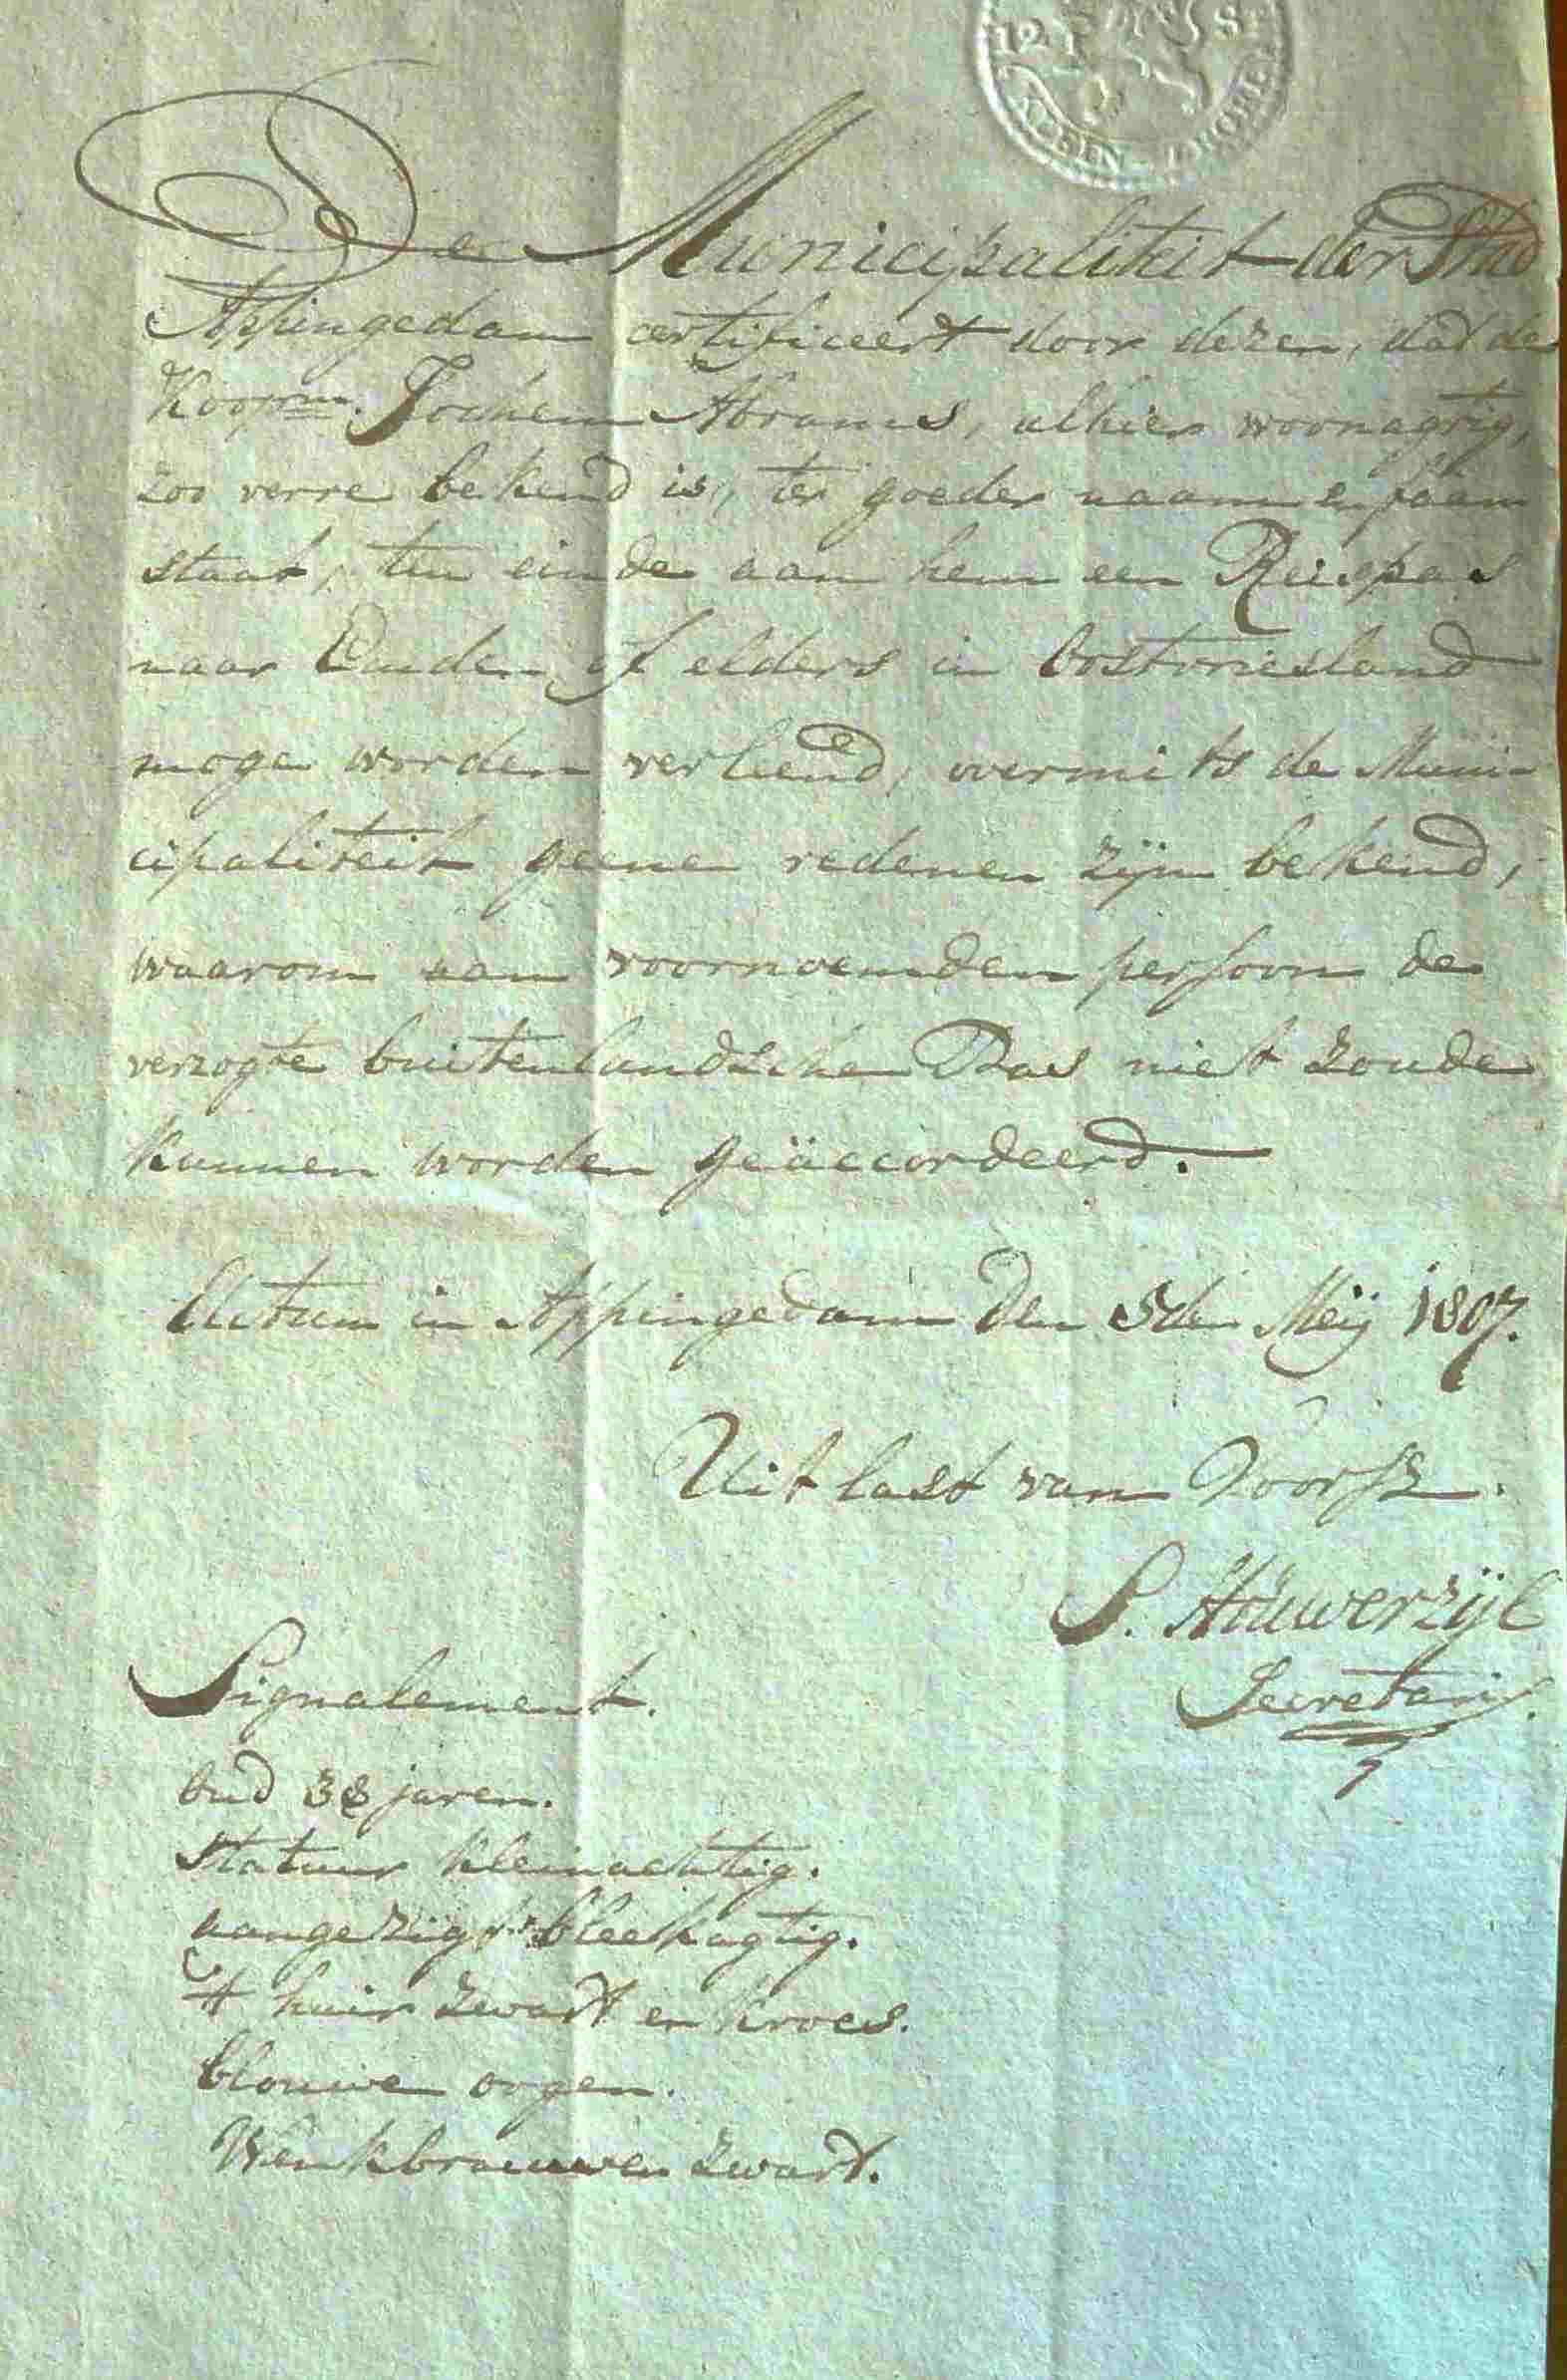 12 S. S.
KLEIN-ZEGEL
De Municipaliteit der Stad
Appingedam certificeert door dezen, dat de
Koopm. Jochem Abrams, alhier woonagtig,
zoo verre bekend is, ter goeder naam en faam
staat, ten einde aan hem een Reispas
naar Emden of elders in Oostvriesland
moge worden verleend, overmits de Muni-
cipaliteit geene redenen zijn bekend,
waarom aan voornoemden persoon de
verzogte buitenlandsche Pas niet zoude
kunnen worden geäccordeerd.
Actum in Appingedam den 5den Meij 1807.
Uit last van Voorsz.
S. Houwerzijl
Secretaris.
Signalement.
oud 38 jaren.
Statuur kleinachtig.
aangezigt bleekagtig.
hair zwart en kroes.
blouwe oogen.
Wenkbraauwen zwart.